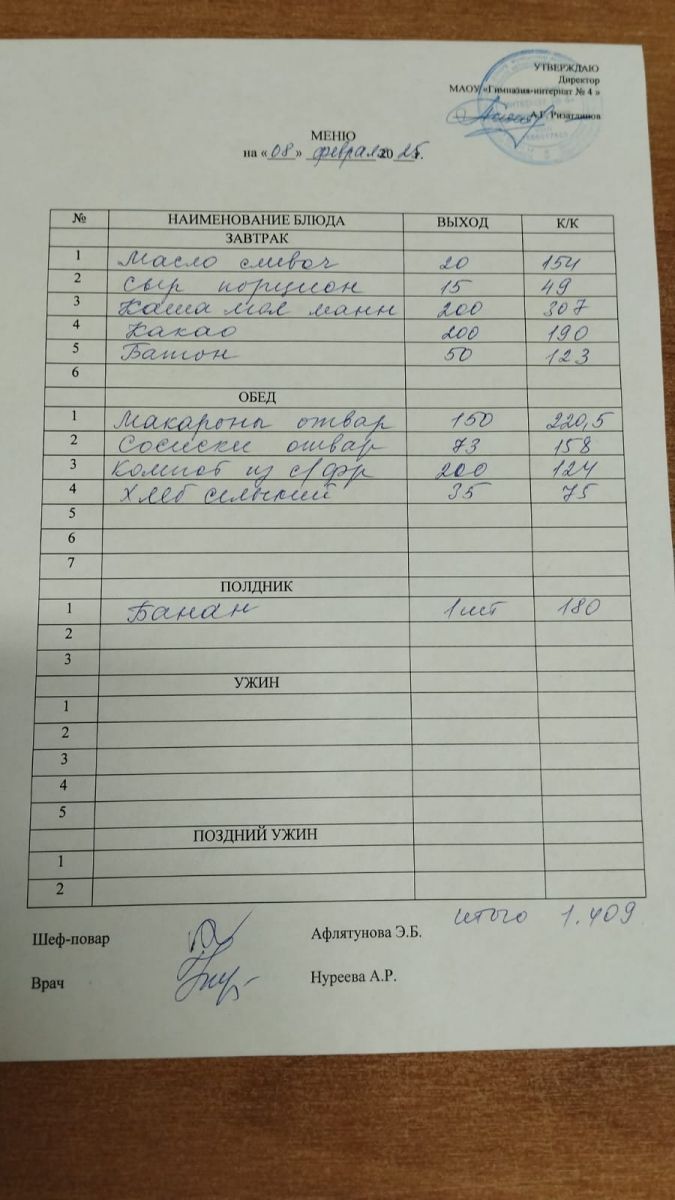 УТВЕРЖДАЮ
Директор
МАОУ «Гимназия-интернат № 4 »
А.Г. Ризатдинов
МЕНЮ
на « 08 » февраля 20 25 г.
№ НАИМЕНОВАНИЕ БЛЮДА ВЫХОД К/К
ЗАВТРАК
1 Масло сливоч 20 154
2 Сыр порцион 15 49
3 Каша мол манн 200 307
4 Какао 200 190
5 Батон 50 123
6
ОБЕД
1 Макароны отвар 150 220,5
2 Сосиски отвар 73 158
3 Компот из с/фр 200 124
4 Хлеб сельский 35 75
5
6
7
ПОЛДНИК
1 Банан 1шт 180
2
3
УЖИН
1
2
3
4
5
ПОЗДНИЙ УЖИН
1
2
итого 1.409
Шеф-повар Афлятунова Э.Б.
Врач Нуреева А.Р.